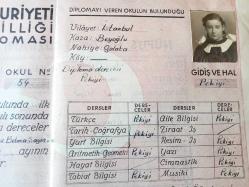 URİYETİ
İLLİĞİ
OMASI
OKUL NO
54
DİPLOMAYI VEREN OKULUN BULUNDUĞU
Vilâyet İstanbul
Kaza: Beyoğlu
Nahiye: Galata
Köy:
Diploma derecesi
Pekiyi
GİDİŞ VE HAL
Pekiyi
DERSLER DERECELER DERSLER DERECELER
Türkçe Pekiyi Aile Bilgisi
Tarih-Coğrafya Pekiyi Ziraat İş
Yurt Bilgisi Pekiyi Resim-İş
Aritmetik-Geometri Pekiyi Yazı
Hayat Bilgisi Pekiyi Cimnastik
Tabiat Bilgisi Pekiyi Musiki
unda ilk
sonunda
dereceler
ayının